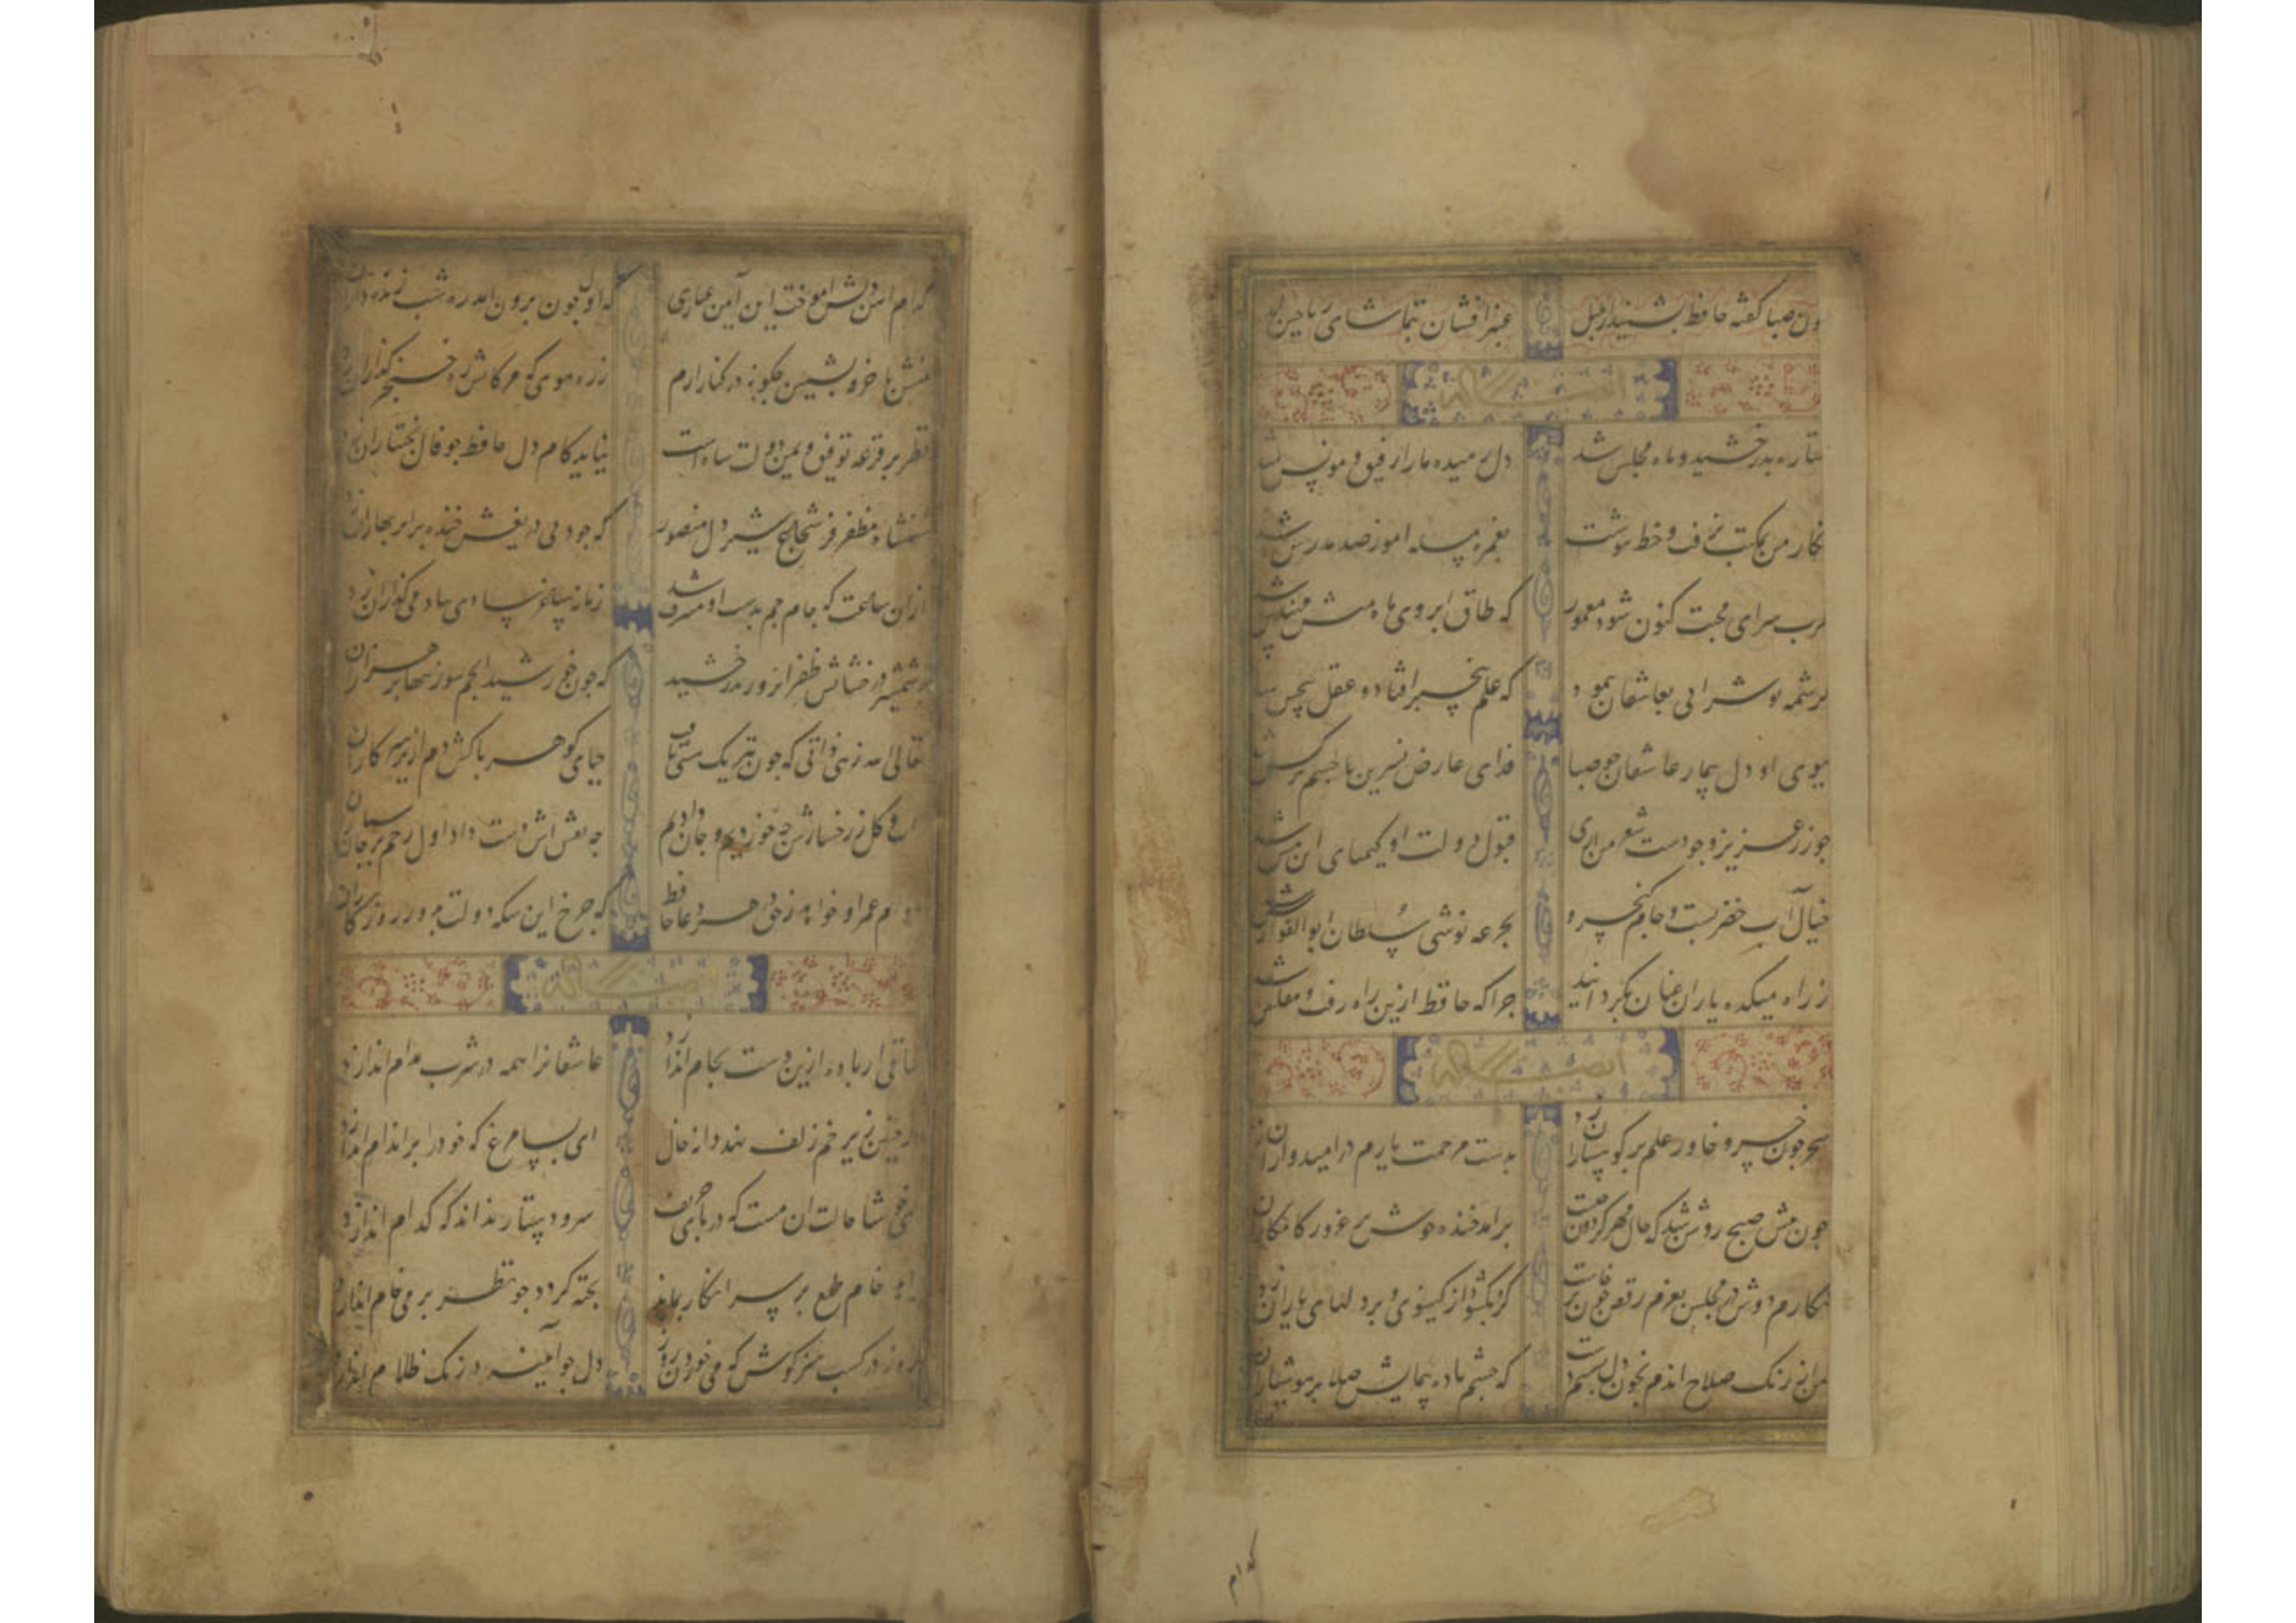 چون صبا گفته حافظ بشنید از بلبل عنبر افشان بتماشای ریاحین
ستاره بدرخشید و ماه مجلس شد دل رمیده ما را رفیق و مونس شد
نکار من که بمکتب نرفت و خط ننوشت بغمزه مسله اموز صد مدرس شد
طرب سرای محبت کنون شود معمور که طاق ابروی ماه منش مهندس شد
کرشمه تو شرابی بعاشقان نمود که علم بیخبر افتاد و عقل بیحس شد
ببوی او دل بیمار عاشقان جو صبا فدای عارض نسرین با جشم نرکس شد
جو زر عزیز وجودست شعر من اری قبول دولت او کیمیای این مس شد
خیال آب خضر بست و جام کیخسرو بجرعه نوشی سلطان ابوالفوارس شد
ز راه میکده یاران عنان بکردانید جرا که حافظ ازین راه رفت و مفلس شد
سحر جون خسرو خاور علم بر کوهساران زد بدست مرحمت یارم در امیدواران زد
جون پیش صبح روشن شد که حال مهر کردون جیست برامد خنده خوش بر غرور کامکاران زد
نکارم دوش در مجلس بعزم رقص جون برخاست کره بکشود از کیسوی و بر دلهای یاران زد
من از رنک صلاح اندم بخون دل بشستم دست که جشم باده پیمایش صلا بر هوشیاران زد
کدام
کدام اهن دلش اموخت این آیین عیاری که اول جون برون امد ره شب زنده داران زد
منش با خرقه بشمین جکونه در کنار ارم زره مویی که مژکانش ره خنجر کذاران زد
نظر بر قرعه توفیق و یمن دولت شاه است بیاید کام دل حافظ جو فال بختیاران زد
شهنشاه مظفر فر شجاع شیر دل منصور که جود بی دریغش خنده بر ابر بهاران زد
از ان ساعت که جام جم بدست او مشرف شد زمانه ساغر شادی بیاد می کذاران زد
ز شمشیر درخشانش ظفر انروز بدرخشید که جون خورشید انجم سوز تنها بر هزاران زد
تعالی الله زهی ذاتی که جون
او کل از رخسارش جه خون خوردیم و جان دادیم جه نقش اش دست داد اول رقم بر جان سپاران
دوام عمر او خواه ز حق حافظ که جرخ این سکه دولت بدور روزکاران
ساقی ار باده ازین دست بجام اندازد عاشقانرا همه در شرب مدام اندازد
ور جنین زیر خم زلف نهد دانه خال ای بسا مرغ که خود را بر اندام اندازد
ای خوشا حالت ان مست که در پای حریف سر و دستار نداند که کدام اندازد
خام طمع بر سر انکار بماند بخته کردد جو نظر بر می خام اندازد
روز در کسب هنر کوش که می خوردن روز دل جو آیینه در زنک ظلام اندازد